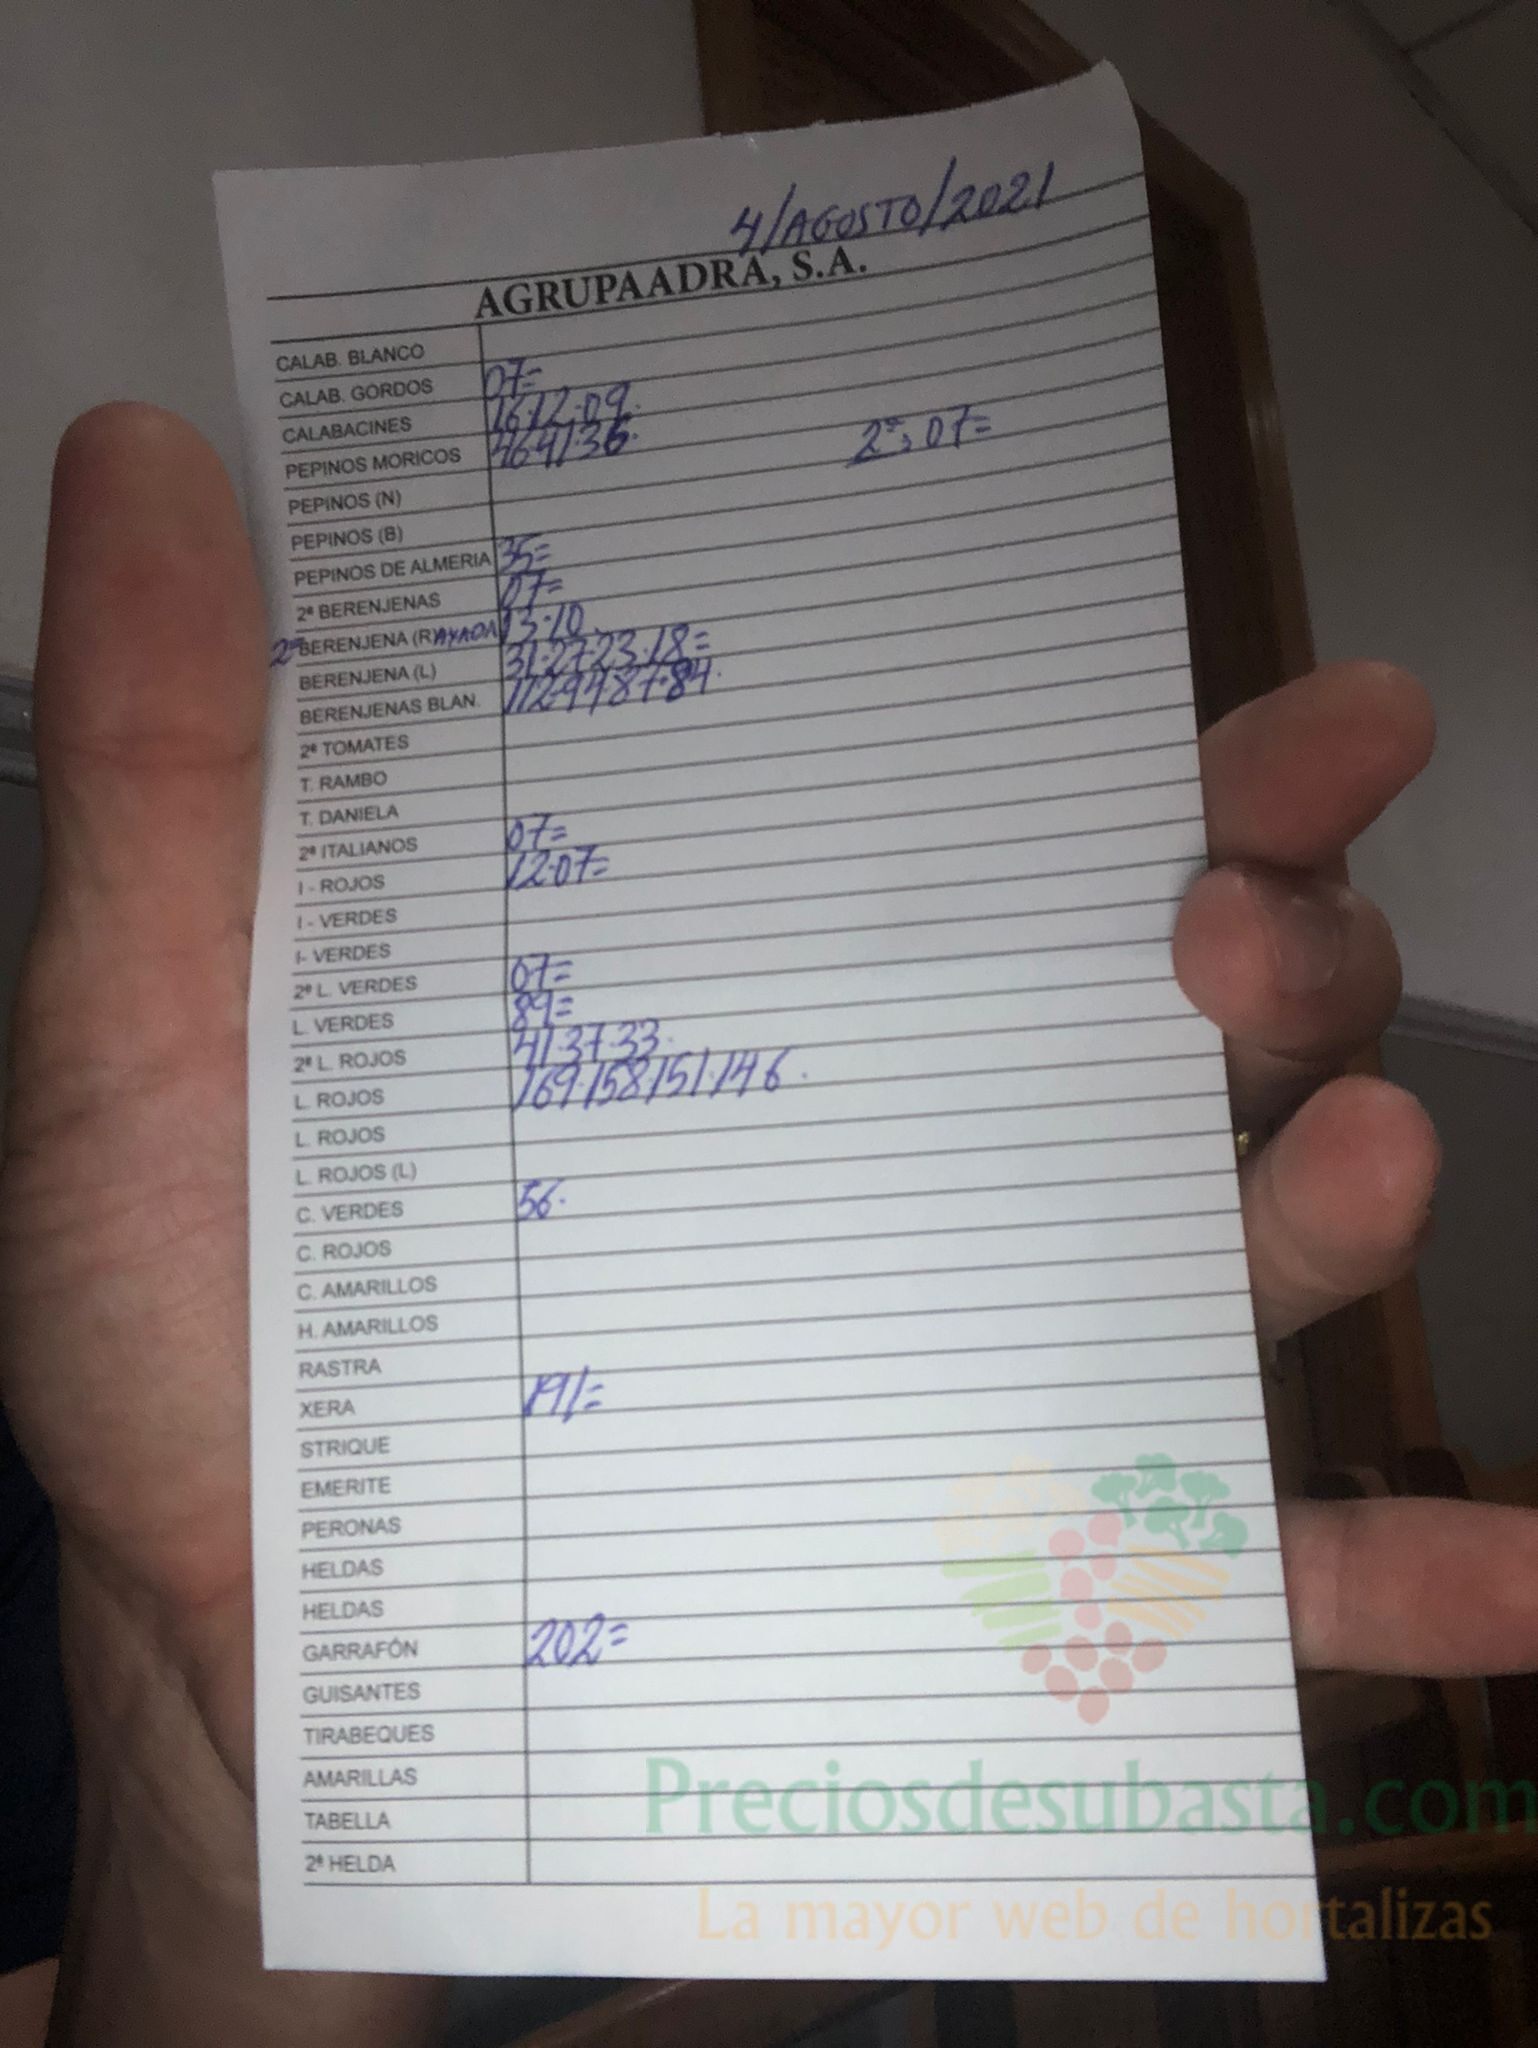 4/AGOSTO/2021
AGRUPAADRA, S.A.
CALAB. BLANCO
CALAB. GORDOS 07=
CALABACINES 16·12·09.
PEPINOS MORICOS 46·41·36. 2ª, 07=
PEPINOS (N)
PEPINOS (B)
PEPINOS DE ALMERIA 35=
2ª BERENJENAS 07=
2ª BERENJENA (RAYADA 13·10.
BERENJENA (L) 31·27·23·18=
BERENJENAS BLAN. 112·94·87·84.
2ª TOMATES
T. RAMBO
T. DANIELA
2ª ITALIANOS 07=
I - ROJOS 12·07=
I - VERDES
I- VERDES
2ª L. VERDES 07=
L. VERDES 89=
2ª L. ROJOS 41·37·33.
L. ROJOS 169·158·151·146.
L. ROJOS
L. ROJOS (L)
C. VERDES 56.
C. ROJOS
C. AMARILLOS
H. AMARILLOS
RASTRA
XERA 191=
STRIQUE
EMERITE
PERONAS
HELDAS
HELDAS
GARRAFÓN 202=
GUISANTES
TIRABEQUES
AMARILLAS
TABELLA
2ª HELDA
Preciosdesubasta.com
La mayor web de hortalizas